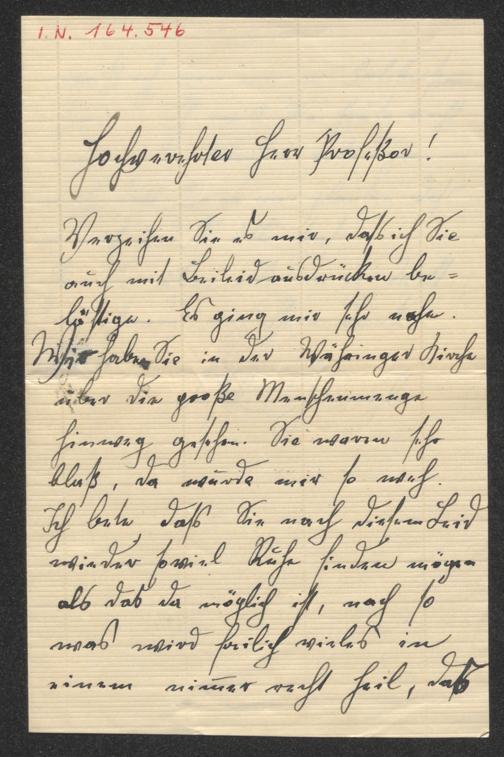 I.N. 164.546
Hochverehrter Herr Professor!
Verzeihen Sie es mir, daß ich Sie
auch mit Beileidausdrücken be=
lästige. Es ging mir sehr nahe.
Wir haben Sie in der Währinger Kirche
über die große Menschenmenge
hinweg gesehen. Sie waren sehr
blaß, da wurde mir so weh.
Ich bete, daß Sie nach diesem Leid
wieder soviel Ruhe finden mögen
als das da möglich ist, nach so
was wird freilich vieles in
einem nimmer recht heil, daß